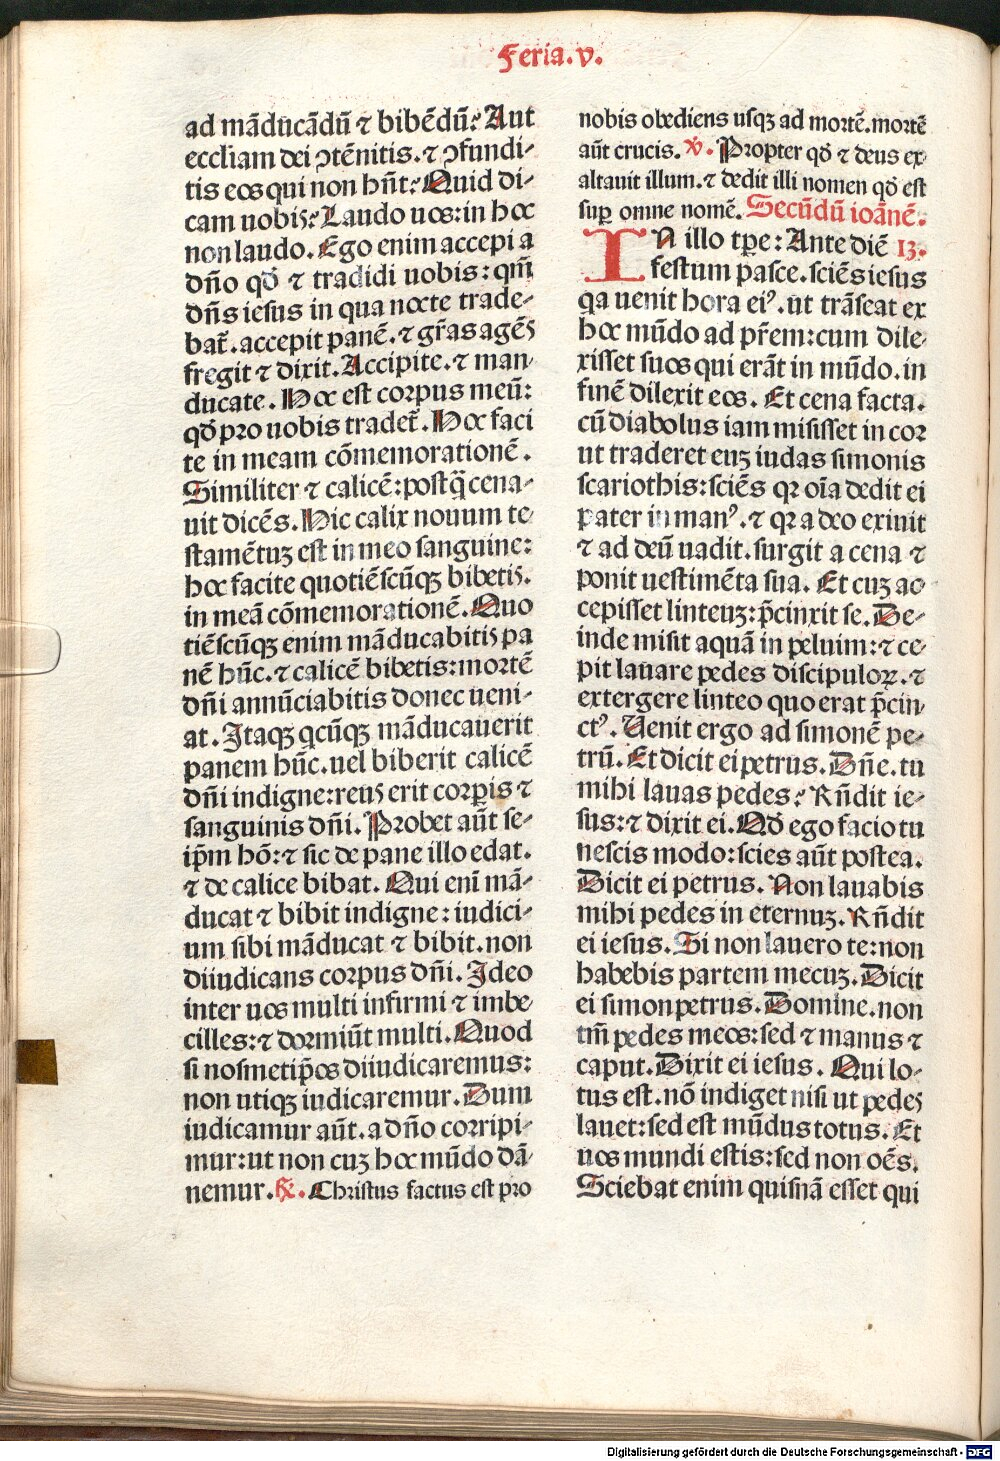 Feria.v.
ad mãducãdũ ⁊ bibẽdũ? Aut
eccliam dei ↄtẽnitis.⁊ ↄfundi-
tis eos qui non hñt? Quid di-
cam uobis? Laudo uos:in hoc
non laudo. Ego enim accepi a
dño qđ ⁊ tradidi uobis: qm̃
dñs iesus in qua nocte trade-
bat̃.accepit panẽ.⁊ gr̃as agẽs
fregit ⁊ dixit. Accipite.⁊ man-
ducate. Hoc est corpus meũ:
qđ pro uobis tradet̃. Hoc faci
te in meam cõmemorationẽ.
Similiter ⁊ calicẽ:postq̃ cena-
uit dicẽs. Hic calix nouum te-
stamẽtuꝫ est in meo sanguine:
hoc facite quotiẽscũqꝫ bibetis.
in meã cõmemorationẽ. Quo
tiẽscũqꝫ enim mãducabitis pa
nẽ hũc.⁊ calicẽ bibetis:mortẽ
dñi annũciabitis donec ueni-
at. Itaqꝫ qcũqꝫ mãducauerit
panem hũc.uel biberit calicẽ
dñi indigne:reus erit corꝑis ⁊
sanguinis dñi. Probet aũt se-
ip̃m hõ:⁊ sic de pane illo edat.
⁊ de calice bibat. Qui eni mã-
ducat ⁊ bibit indigne: iudici-
um sibi mãducat ⁊ bibit.non
diiudicans corpus dñi. Ideo
inter uos multi infirmi ⁊ imbe-
cilles:⁊ dormiũt multi. Quod
si nosmetip̃os diiudicaremus:
non utiqꝫ iudicaremur. Dum
iudicamur aũt.a dño corripi-
mur:ut non cuꝫ hoc mũdo dã-
nemur. ℟. Christus factus est pro
nobis obediens usqꝫ ad mortẽ.mortẽ
aũt crucis. ℣. Propter qđ ⁊ deus ex-
altauit illum.⁊ dedit illi nomen qđ est
suꝑ omne nomẽ. Secũdũ ioãnẽ.
IN illo tꝑe: Ante diẽ 13.
festum pasce.sciẽs iesus
qa uenit hora eiꝰ.ut trãseat ex
hoc mũdo ad pr̃em:cum dile-
xisset suos qui erãt in mũdo.in
finẽ dilexit eos. Et cena facta.
cũ diabolus iam misisset in cor
ut traderet euꝫ iudas simonis
scariothis:sciẽs qꝛ oĩa dedit ei
pater in manꝰ.⁊ qꝛ a deo exiuit
⁊ ad deũ uadit.surgit a cena ⁊
ponit uestimẽta sua. Et cuꝫ ac-
cepisset linteuꝫ:p̃cinxit se. De-
inde misit aquã in peluim:⁊ ce-
pit lauare pedes discipuloꝝ.⁊
extergere linteo quo erat p̃cin-
ctꝰ. Uenit ergo ad simonẽ pe-
trũ. Et dicit ei petrus. Dñe.tu
mihi lauas pedes? Rñdit ie-
sus:⁊ dixit ei. Qđ ego facio tu
nescis modo:scies aũt postea.
Dicit ei petrus. Non lauabis
mihi pedes in eternuꝫ. Rñdit
ei iesus. Si non lauero te:non
habebis partem mecuꝫ. Dicit
ei simon petrus. Domine.non
tm̃ pedes meos:sed ⁊ manus ⁊
caput. Dixit ei iesus. Qui lo-
tus est.nõ indiget nisi ut pedes
lauet:sed est mũdus totus. Et
uos mundi estis:sed non oẽs.
Sciebat enim quisnã esset qui
Digitalisierung gefördert durch die Deutsche Forschungsgemeinschaft - DFG